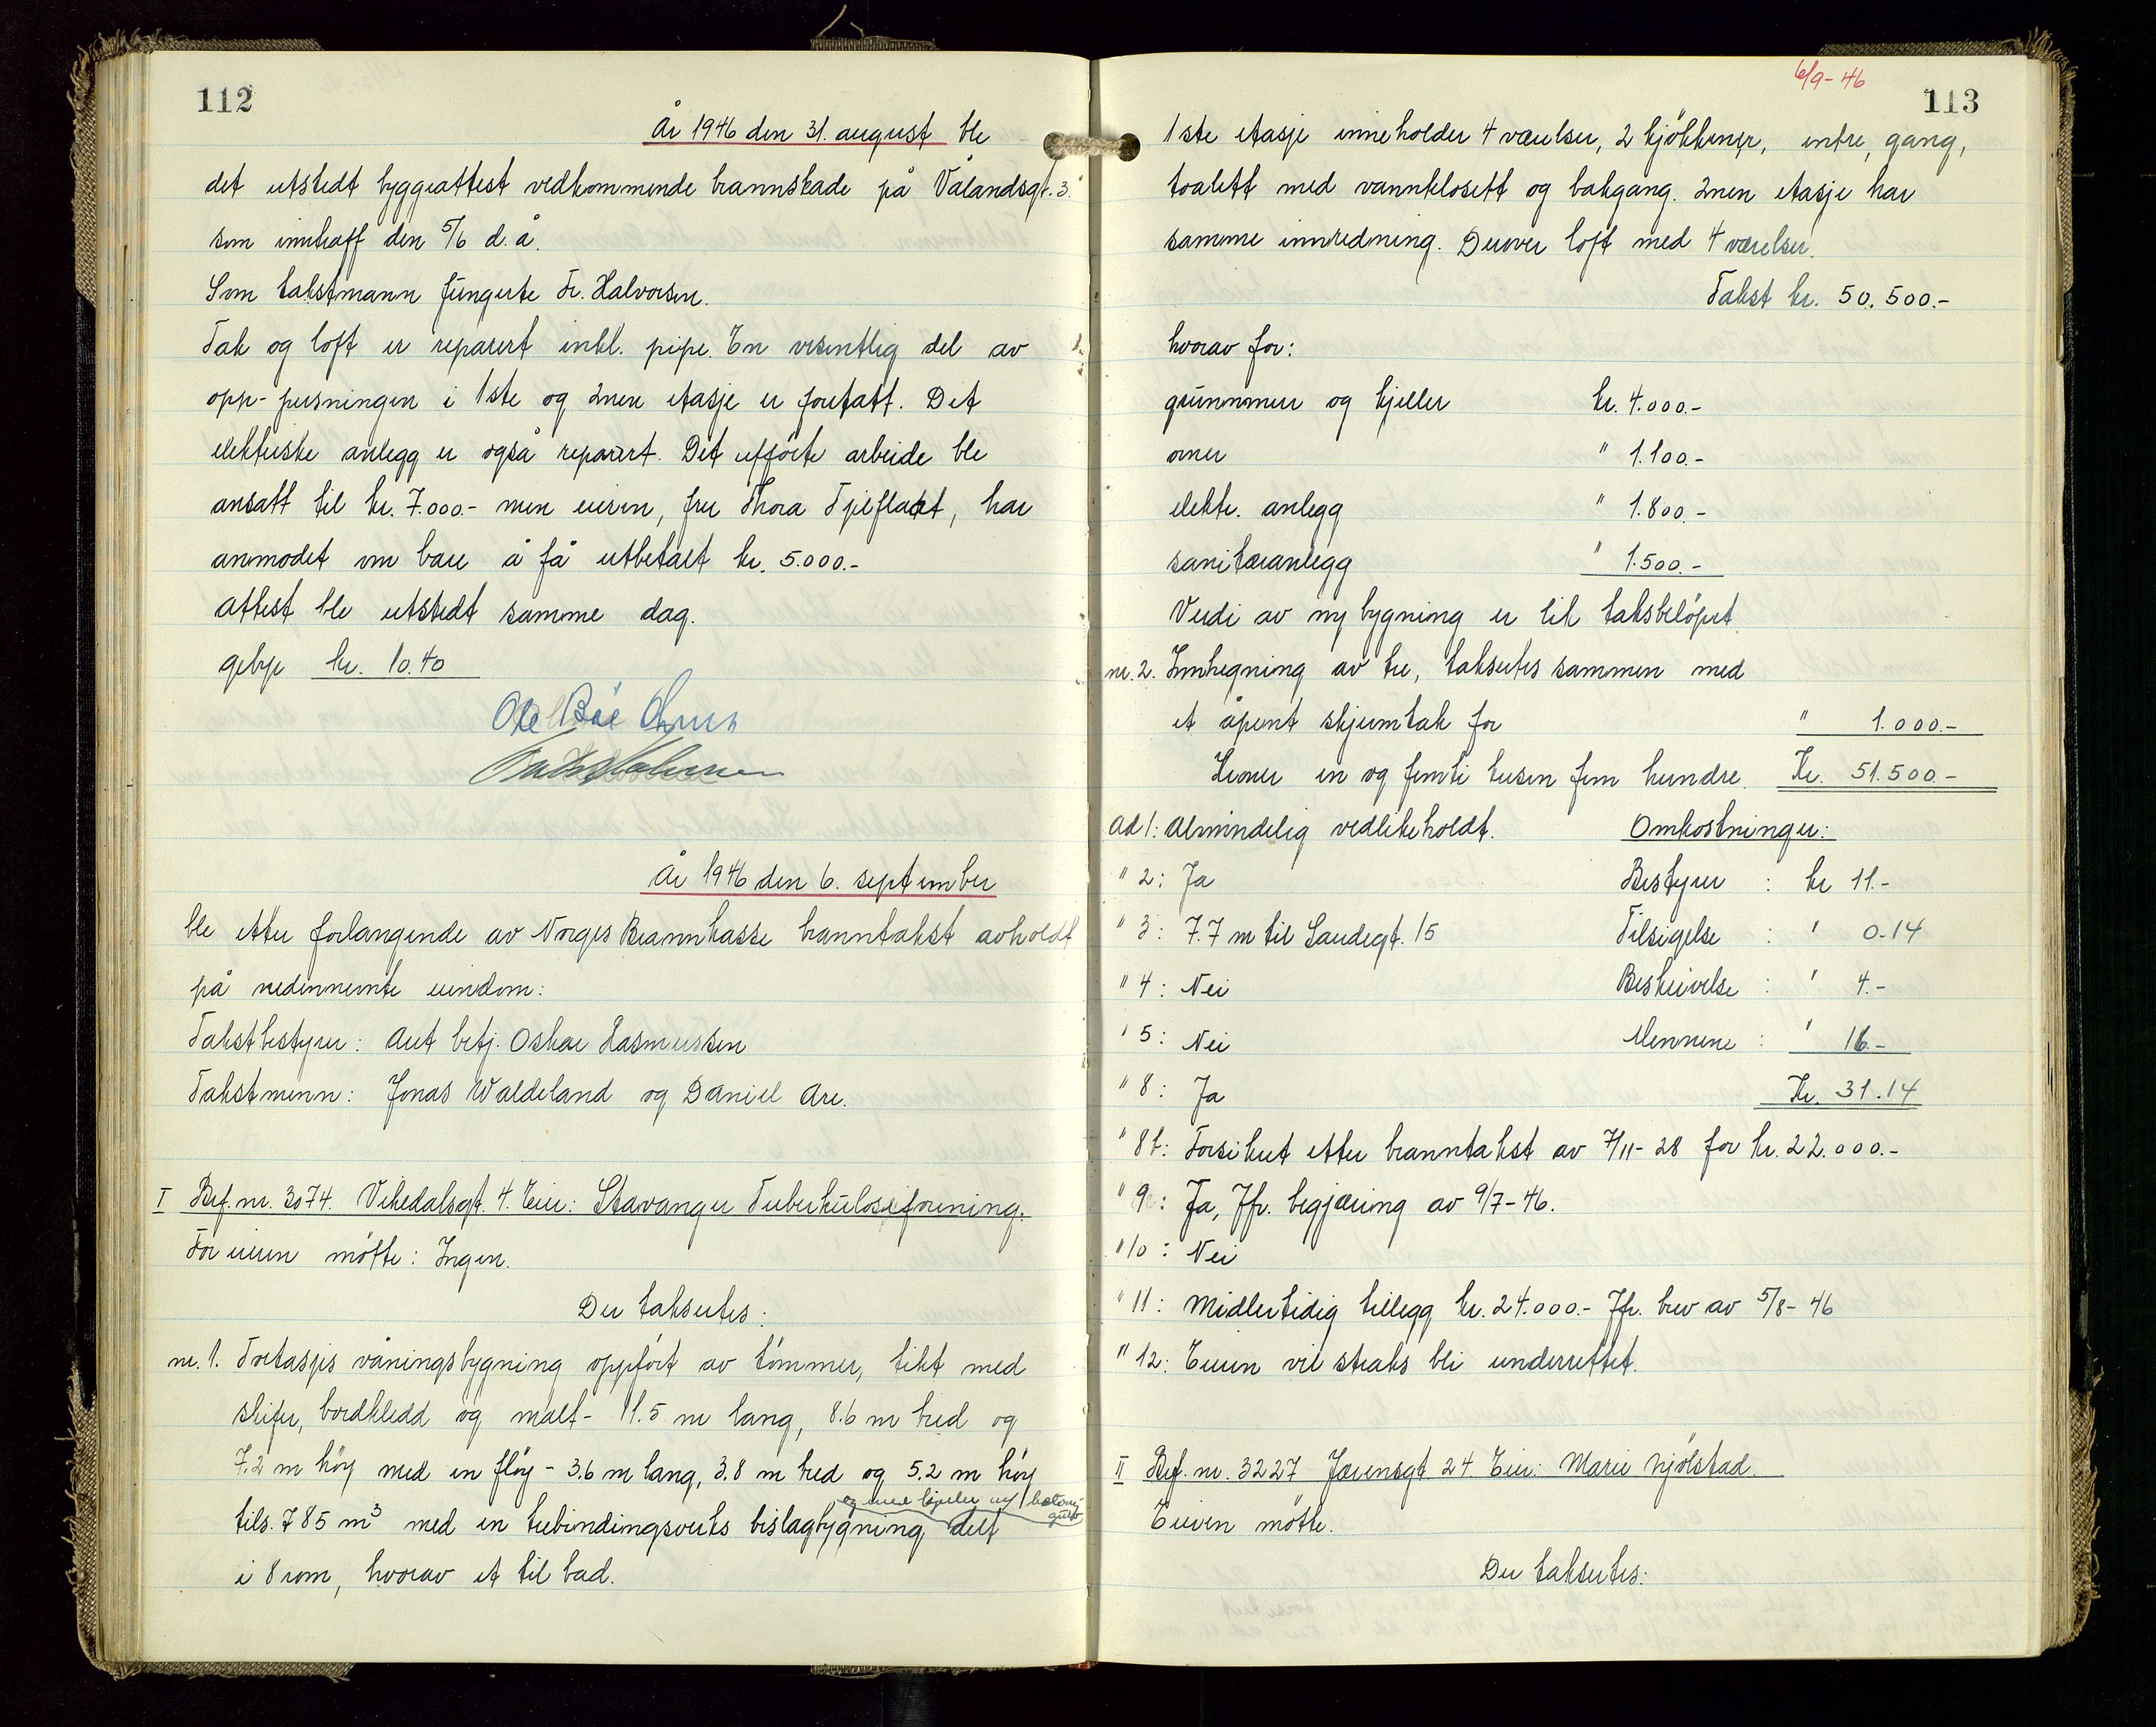 112
År 1946 den 31. august ble
det utstedt byggeattest vedkommende brannskade på Vålandsgt. 3.
som inntraff den 5/6 d.å.
Som takstmann fungerte Fr. Halvorsen.
Tak og loft er reparert inkl. pipe. En vesentlig del av
opp-pusningen i 1ste og 2nen etasje er foretatt. Det
elektriske anlegg er også reparert. Det utførte arbeide ble
ansatt til kr. 7.000.- men eieren, fru Thora Tjelflaat, har
anmodet om bare å få utbetalt kr. 5.000.-
Attest ble utstedt samme dag.
gebyr kr. 10.40
Ole Bøe
År 1946 den 6. september
ble etter forlangende av Norges Brannkasse branntakst avholdt
på nedennevnte eiendom:
Takstbestyrer: Aut betj. Oskar Rasmussen
Takstmenn: Jonas Waldeland og Daniel Are.
I Brf. nr. 3074. Vikedalsgt. 4. Eier: Stavanger Tuberkuloseforening.
For eieren møtte: Ingen.
Der takseres:
nr. 1. Toetasjes våningsbygning oppført av tømmer, tekt med
skifer, bordkledd og malt - 11.5 m lang, 8.6 m bred og
7.2 m høy med en fløy - 3.6 m lang, 3.8 m bred og 5.2 m høy
og med kjeller m/ betong-
gulv
tils. 785 m³ med en trebindingsverks bislagbygning delt
i 8 rom, hvorav et til bad.
6/9-46
113
1ste etasje inneholder 4 værelser, 2 kjøkkener, entre, gang,
toalett med vannklosett og bakgang. 2nen etasje har
samme innredning. Derover loft med 4 værelser.
Takst kr. 50.500.-
hvorav for:
grunnmur og kjeller kr. 4.000.-
ovner " 1.100.-
elektr. anlegg " 1.800.-
sanitæranlegg " 1.500.-
Verdi av ny bygning er lik taksbeløpet.
nr. 2. Innhegning av tre, takseres sammen med
et åpent skjermtak for " 1.000.-
Kroner en og femti tusen fem hundre. Kr. 51.500.-
Ad 1: Almindelig vedlikeholdt. Omkostninger:
" 2: Ja Bestyrer : kr 11.-
" 3: 7.7 m til Saudegt. 15 Tilsigelse : " 0.14
" 4: Nei Beskrivelse : " 4.-
" 5: Nei Mennene : " 16.-
" 8: Ja Kr. 31.14
" 8b: Forsikret etter branntakst av 7/11-28 for kr. 22.000.-
" 9: Ja, Jfr. begjæring av 9/7-46.
" 10: Nei
" 11: Midlertidig tillegg kr. 24.000.- Jfr. brev av 5/8-46
" 12: Eieren vil straks bli underrettet.
II Brf. nr. 3227 Jærensgt 24. Eier: Marie Njølstad.
Eieren møtte.
Der takseres: